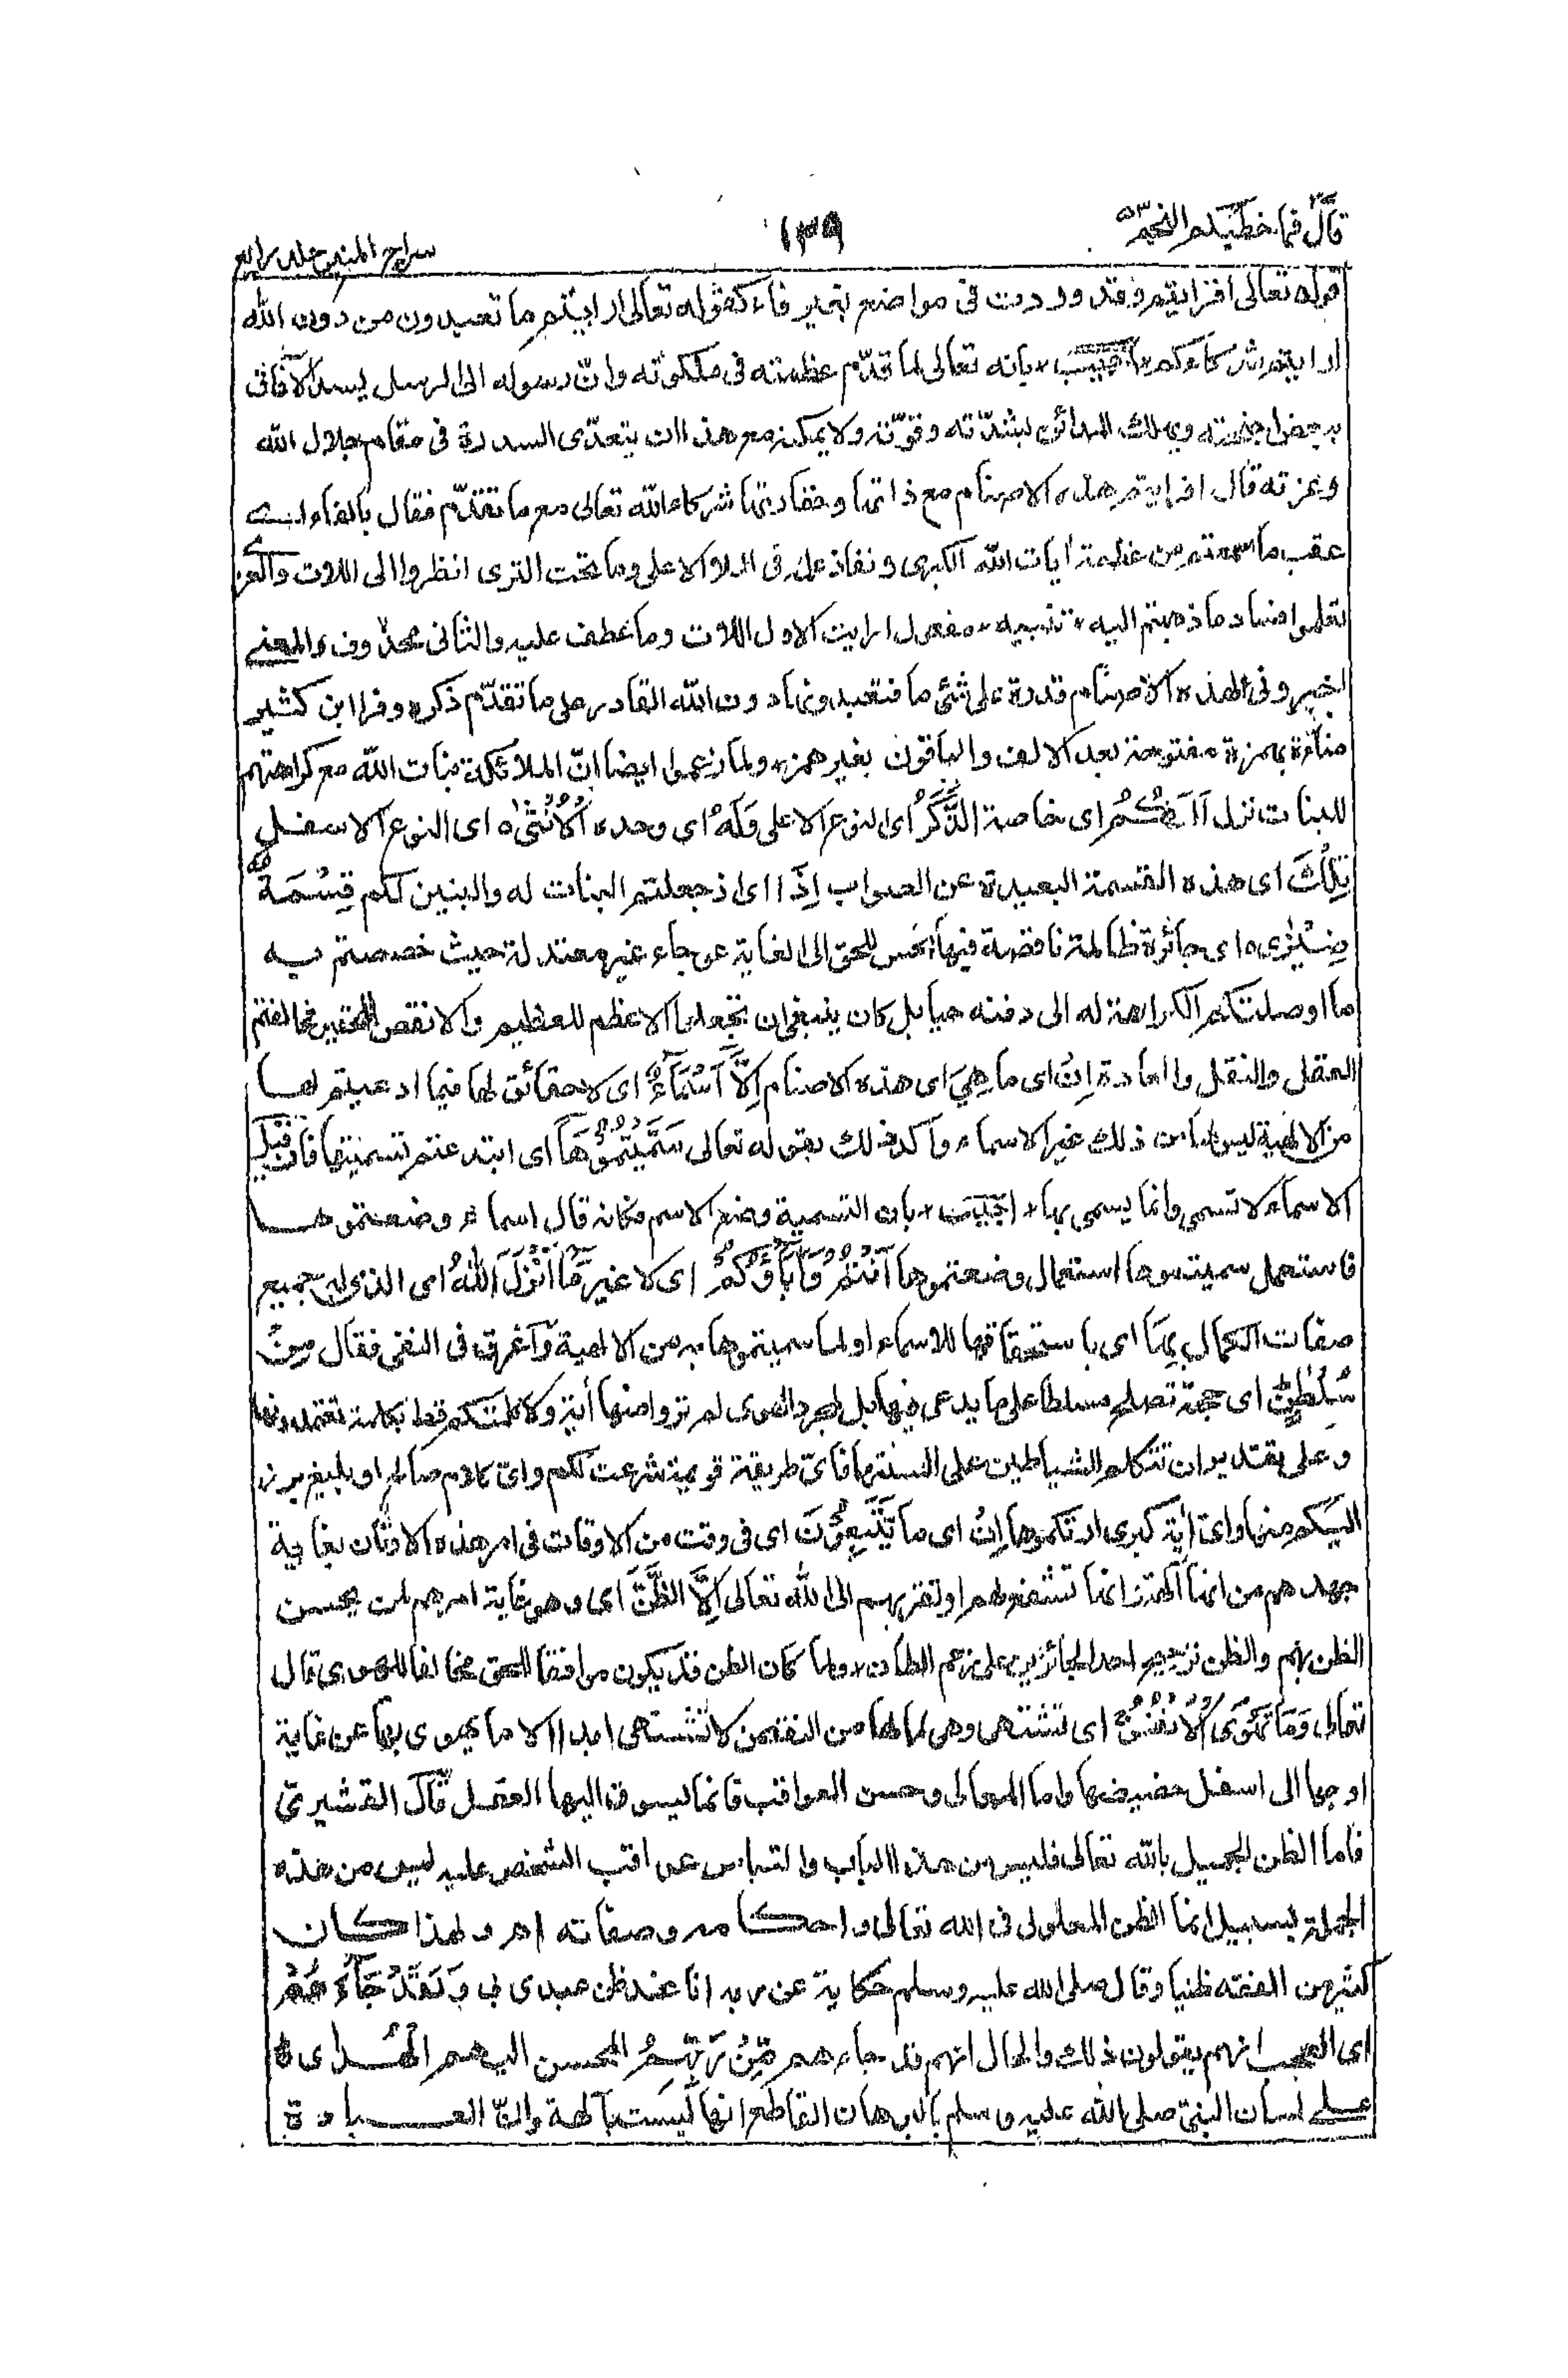 قال فما خطبكم النجم ۵۳
۱۳۹
سراج المنیر جلد رابع
قوله تعالى افرايتم وقد وردت فى مواضع بغير فاء كقوله تعالى ارايتم ما تعبدون من دون الله
ارايتم شركاءكم اجيب بانه تعالى لما تقدّم عظمته فى ملكوته وانّ رسوله الى الرسل يسد الآفاق
ببعض اجنحته ويهلك المدائن بشدّته وقوّته ولا يمكنه مع هذا ان يتعدّى السدرة فى مقام جلال الله
وعزته قال افرايتم هذه الاصنام مع ذلتها وحقارتها شركاء الله تعالى مع ما تقدّم فقال بالفاء اى
عقب ما سمعتم من عظمة أيات الله الكبرى ونفاذ امره فى الملا الاعلى وما تحت الثرى انظروا الى اللات والعزى
تعلموا فساد ما ذهبتم اليه تنبيه مفعول ارايت الاول اللات وما عطف عليه والثانى محذوف والمعنى
اخبرونى الهذه الاصنام قدرة على شئ ما فتعبدونها دون الله القادر على ما تقدّم ذكره وقرا ابن كثير
مناءة بهمزة مفتوحة بعد الالف والباقون بغير همز ولما زعموا ايضا انّ الملائكة بنات الله مع كراهتهم
للبنات نزل اَلَكُمُ اى خاصة الذَّكَرُ اى النوع الاعلى وَلَهُ اى وحده الْاُنْثٰى اى النوع الاسفل
تِلْكَ اى هذه القسمة البعيدة عن الصواب اِذًا اى اذ جعلتم البنات له والبنين لكم قِسْمَةٌ
ضِيْزٰى اى جائرة ظالمة ناقصة فيها بخس للحق الى الغاية عوجاء غير معتدلة حيث خصصتم به
ما اوصلتكم الكراهة له الى دفنه حيا بل كان ينبغى ان تجعلوا الاعظم للعظيم والانقص للحقير فخالفتم
العقل والنقل والعادة اِنْ اى ما هِيَ اى هذه الاصنام اِلَّا اَسْمَآءٌ اى لا حقائق لها فيما ادعيتم لها
من الالهية ليس لها من ذلك غير الاسماء واكد ذلك بقوله تعالى سَمَّيْتُمُوْهَا اى ابتدعتم تسميتها فان قيل
الاسماء لا تسمى وانما يسمى بها اجيب بان التسمية وضع الاسم فكانه قال اسماء وضعتموها
فاستعمل سميتموها استعمال وضعتموها اَنْتُمْ وَاٰبَآؤُكُمْ اى لا غير مَّا اَنْزَلَ اللّٰهُ اى الذى له جميع
صفات الكمال بِهَا اى باستحقاقها للاسماء اولما سميتموها به من الالهية واغرق فى النفى فقال مِنْ
سُلْطٰنٍ اى حجة تصلح مسلطا على ما يدعى فيها بل لمجرد الهوى لم تروا منها أية ولا كلمتكم قط بكلمة تعتمدونها
وعلى تقدير ان تتكلم الشياطين على السنتها فاىّ طريقة قويمة شرعت لكم واىّ كلام صالح او بليغ برز
اليكم منها واىّ أية كبرى ارتكموها اِنْ اى ما يَّتَّبِعُوْنَ اى فى وقت من الاوقات فى امر هذه الاوثان بغاية
جهدهم من انها آلهة وانها تشفع لهم او تقربهم الى الله تعالى اِلَّا الظَّنَّ اى وهو غاية امرهم لمن يحسن
الظن بهم والظن ترجيح احد الجائزين على زعم الظان ولما كان الظن قد يكون موافقا للحق مخالفا للهوى قال
تعالى وَمَا تَهْوَى الْاَنْفُسُ اى تشتهى وهى لما لها من النقص لا تشتهى ابدا الا ما يهوى بها عن غاية
اوجها الى اسفل حضيضها واما المعالى وحسن العواقب فانما يسوق اليها العقل قال القشيرىّ
فاما الظن الجميل بالله تعالى فليس من هذا الباب والتباس عواقب الشخص عليه ليس من هذه
الجملة بسبيل انما الظن المعلول فى الله تعالى واحكامه وصفاته اھ ولهذا كان
كثير من الفقه ظنيا وقال صلى الله عليه وسلم حكاية عن ربه انا عند ظن عبدى بى وَلَقَدْ جَآءَهُمْ
اى العجب انهم يقولون ذلك والحال انهم قد جاءهم مِّنْ رَّبِّهِمُ المحسن اليهم الْهُدٰى
على لسان النبىّ صلى الله عليه وسلم بالبرهان القاطع انها ليست بآلهة وانّ العبادة